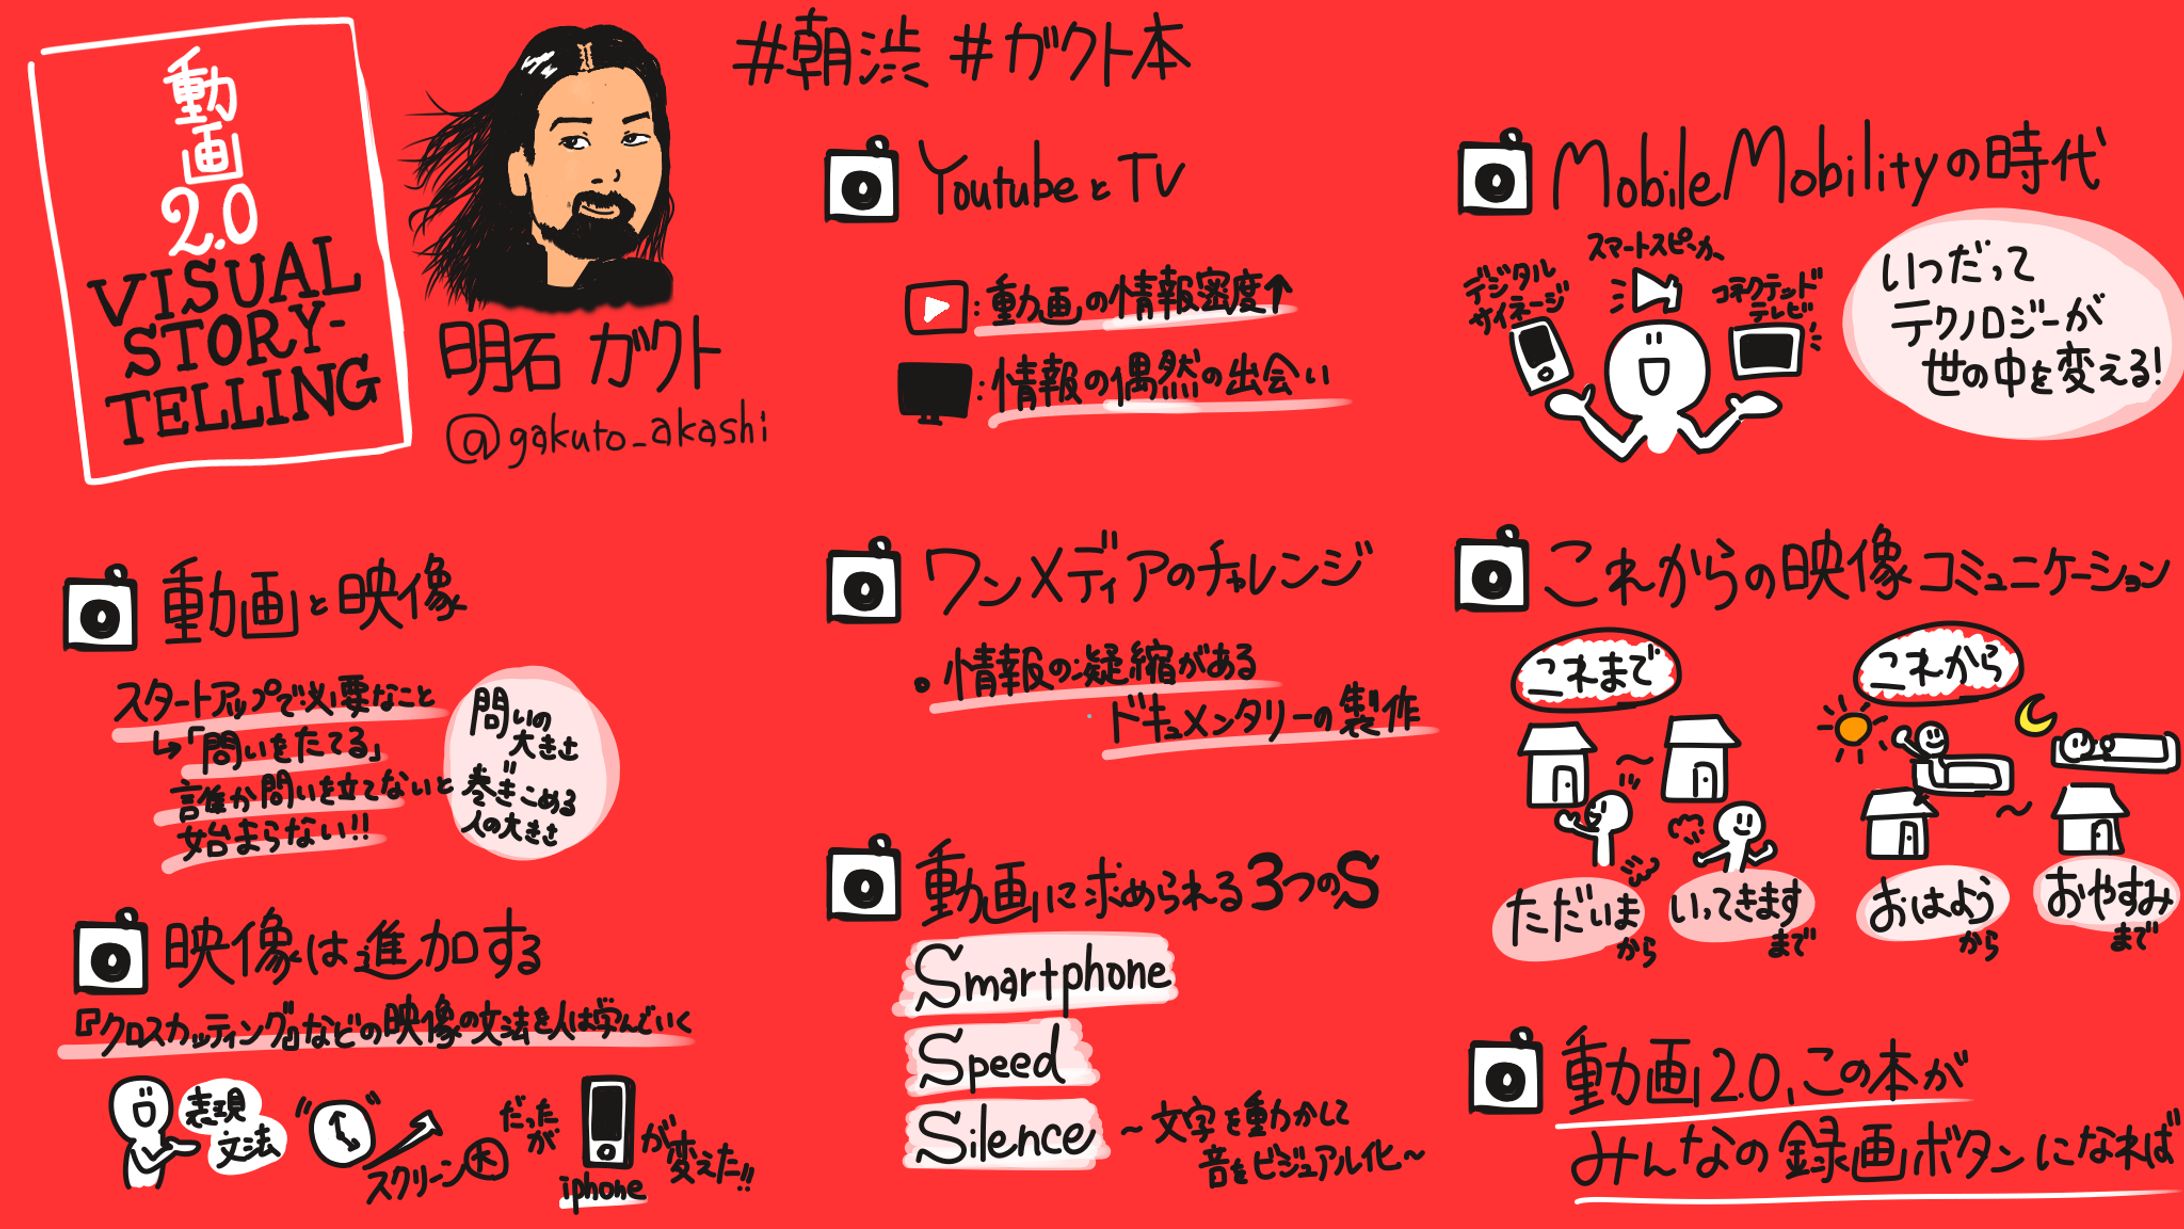 動画
2.0
VISUAL
STORY-
TELLING
明石 ガクト
@gakuto_akashi
#朝渋 #ガクト本
動画と映像
スタートアップで必要なこと
↳「問いをたてる」
誰か問いを立てないと
始まらない!!
問いの
大きさ
巻きこめる
人の大きさ
映像は進加する
『クロスカッティング』などの映像の文法を人は学んでいく
表現
文法
スクリーン大
だったが
iphone
が変えた!!
YoutubeとTV
:動画の情報密度↑
:情報の偶然の出会い
ワンメディアのチャレンジ
・情報の凝縮がある
ドキュメンタリーの製作
動画に求められる3つのS
Smartphone
Speed
Silence
～文字を動かして
音をビジュアル化～
Mobile Mobilityの時代
デジタル
サイネージ
スマートスピーカー
コネクテッド
テレビ
いつだって
テクノロジーが
世の中を変える!
これからの映像コミュニケーション
これまで
～
ただいま
から
いってきます
まで
これから
～
おはよう
から
おやすみ
まで
動画2.0、この本が
みんなの録画ボタンになれば